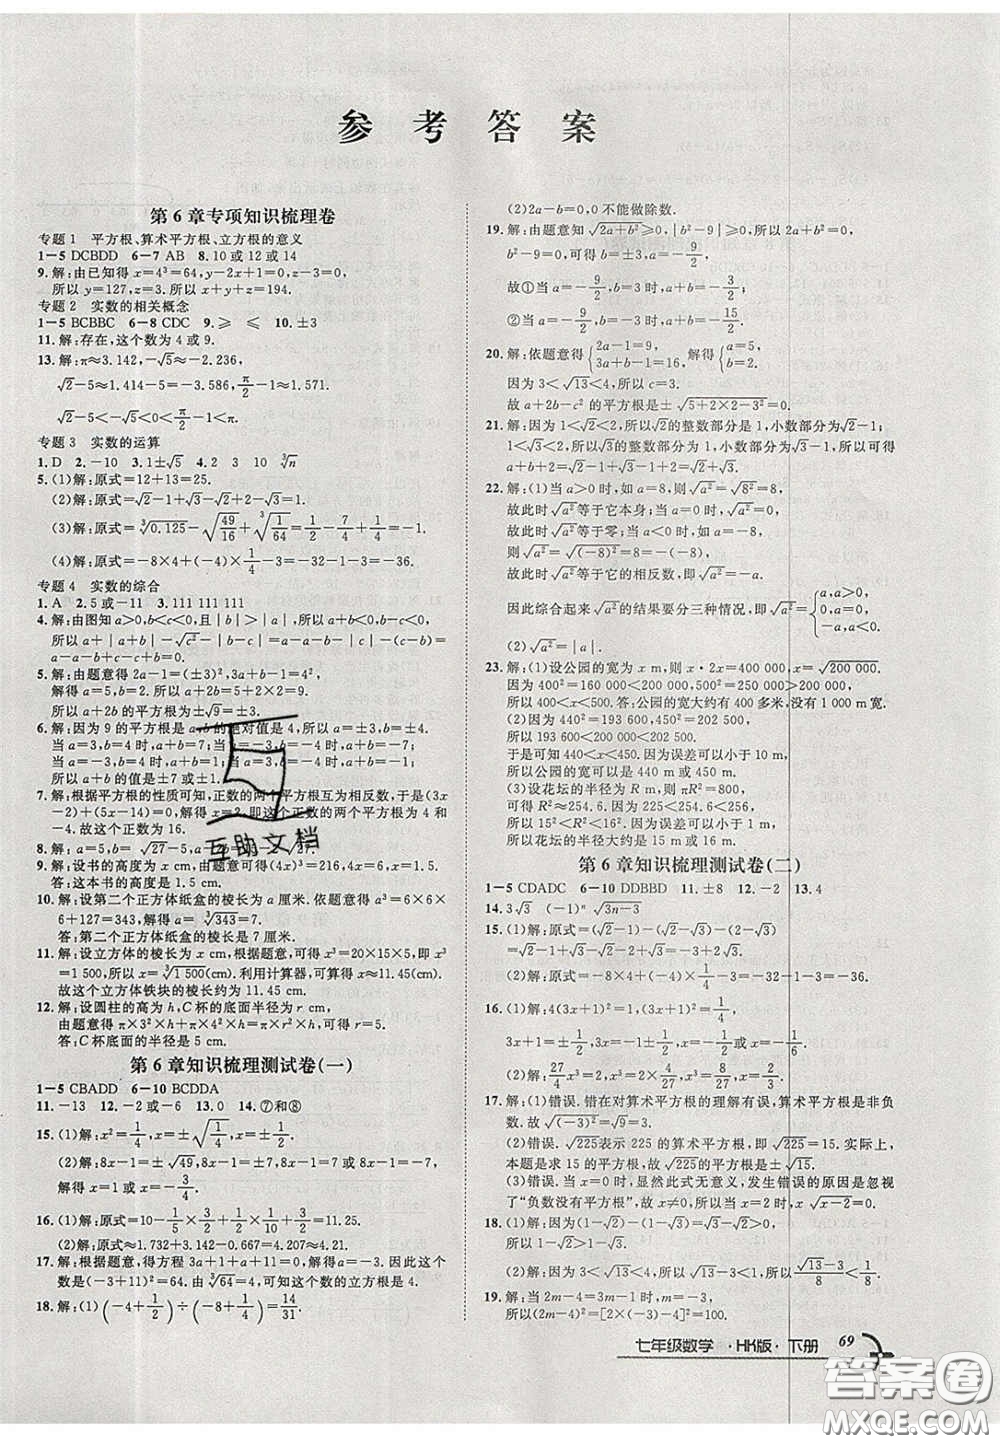 参考答案
第6章专项知识梳理卷
专题1 平方根、算术平方根、立方根的意义
1—5 DCBDD 6—7 AB 8.10或12或14
9.解:由已知得x=4³=64,y-2x+1=0,z-3=0.
所以y=127,z=3.所以x+y+z=194.
专题2 实数的相关概念
1—5 BCBBC 6—8 CDC 9.⩾ ⩽ 10.±3
11.解:存在,这个数为4或9.
13.解:π≈3.142,-√5≈-2.236,
√2-5≈1.414-5=-3.586,π/2-1≈1.571.
√2-5<-√5<0<π/2-1<π.
专题3 实数的运算
1.D 2.-10 3.1±√5 4.2 3 10 ³√n
5.(1)解:原式=12+13=25.
(2)解:原式=√2-1+√3-√2+2-√3=1.
(3)解:原式=³√0.125-√(49/16)+³√(1/64)=1/2-7/4+1/4=-1.
(4)解:原式=-8×4+(-4)×1/4-3=-32-1-3=-36.
专题4 实数的综合
1.A 2.5或-11 3.111 111 111
4.解:由图知a>0,b<c<0,且|b|>|a|,所以a+b<0,
所以a+|a+b|-√c²-|b-c|=a-a-b-|c|-(c-b)=
a-a-b+c-c+b=0.
5.解:由题意得2a-1=(±3)²,3a+b-1=4²,
解得a=5,b=2.所以a+2b=5+2×2=9.
所以a+2b的平方根为±√9=±3.
6.解:因为9的平方根是a,b的绝对值是4,所以a=±3,b=±4.
当a=3,b=4时,a+b=7;当a=-3,b=-4时,a+b=-7;
当a=3,b=-4时,a+b=-1;当a=-3,b=4时,a+b=1.
所以a+b的值是±7或±1.
7.解:根据平方根的性质可知,正数的两个平方根互为相反数,于是(3x
-2)+(5x-14)=0,解得x=2.即这个正数的两个平方根为4和
-4.故这个正数为16.
8.解:a=5,b=√27-5,a-b=5-(√27-5)=10-√27.
9.解:设书的高度为x cm,由题意可得(4x)³=216,4x=6,x=1.5.
答:这本书的高度是1.5 cm.
10.解:设第二个正方体纸盒的棱长为a厘米.依题意得a³=6×6×
6+127=343,解得a=³√343=7.
答:第二个正方体纸盒的棱长是7厘米.
11.解:设立方体的棱长为x cm,根据题意,可得x³=20×15×5,即
x³=1 500,所以x=³√1 500(cm).利用计算器,可得x≈11.45(cm).
故这个立方体铁块的棱长约为11.45 cm.
12.解:设圆柱的高为h,C杯的底面半径为r cm,
由题意得π×3²×h+π×4²×h=π×r²×h,可得r=5.
答:C杯底面的半径是5 cm.
第6章知识梳理测试卷(一)
1—5 CBADD 6—10 BCDDA
11.-13 12.-2或-6 13.0 14.⑦和⑧
15.(1)解:x²=1/4,x=±√(1/4),x=±1/2.
(2)解:8x-1=±√49,8x-1=±7,8x-1=7或8x-1=-7.
解得x=1或x=-3/4.
16.(1)解:原式=10-1/5×3/2+1/2×1/10+3/2=11.25.
(2)解:原式≈1.732+3.142-0.667=4.207≈4.21.
17.解:根据题意,得方程3a+1+a+11=0,解得a=-3.因此这个
数是(-3+11)²=64.由³√64=4,可知这个数的立方根是4.
18.解:(1)(-4+1/2)÷(-8+1/4)=14/31.
(2)2a-b=0,0不能做除数.
19.解:由题意知√(2a+b²)⩾0,|b²-9|⩾0.故2a+b²=0,
b²-9=0,可得b=±3,a=-9/2,
故①当a=-9/2,b=3时,a+b=-3/2;
②当a=-9/2,b=-3时,a+b=-15/2.
20.解:依题意得{2a-1=9, 3a+b-1=16. 解得{a=5, b=2.
因为3<√13<4,所以c=3.
故a+2b-c²的平方根是±√(5+2×2-3²)=0.
21.解:因为1<√2<2,所以√2的整数部分为1,小数部分为√2-1.
1<√3<2,所以√3的整数部分为1,小数部分√3-1,所以可得
a+b+2=√2-1+√3-1+2=√2+√3.
22.解:(1)当a>0时,如a=8,则√a²=√8²=8,
故此时√a²等于它本身;当a=0时,√a²=0,
故此时√a²等于零;当a<0时,如a=-8,
则√a²=√(-8)²=8=-(-8),
故此时√a²等于它的相反数,即√a²=-a(a<0).
因此综合起来√a²的结果要分三种情况,即√a²={a,a>0, 0,a=0, -a,a<0.
(2)√a²=|a|.
23.解:(1)设公园的宽为x m,则x·2x=400 000,x=√200 000.
因为400²=160 000<200 000,500²=250 000>200 000,
所以400<x<500.答:公园的宽大约有400多米,没有1 000米宽.
(2)因为440²=193 600,450²=202 500,
所以193 600<200 000<202 500.
于是可知440<x<450.因为误差可以小于10 m,
所以公园的宽可以是440 m或450 m.
(3)设花坛的半径为R m,则πR²=800,
可得R²≈254.6.因为225<254.6<256,
所以15<R<16.因为误差可以小于1 m,
所以花坛的半径大约是15 m或16 m.
第6章知识梳理测试卷(二)
1—5 CDADC 6—10 DDBBD 11.±8 12.-2 13.4
14.3√3 (-1)ⁿ√(3n-3)
15.(1)解:原式=(√2-1)-(√2-√3)-(2-√3)
=√2-1-√2+√3-2+√3=-3+2√3.
(2)解:原式=-8×4+(-4)×1/4-3=-32-1-3=-36.
16.(1)解:4(3x+1)²=1,(3x+1)²=1/4,
3x+1=±1/2,3x=-1±1/2,x=-1/2或x=-1/6.
(2)解:27/4x³=-2,x³=-2×4/27,x³=-8/27,x=-2/3.
17.解:(1)错误.错在对算术平方根的理解有误,算术平方根是非负
数.故√(-3)²=√9=3.
(2)错误.√225表示225的算术平方根,即√225=15.实际上,
本题是求15的平方根,故√225的平方根是±√15.
(3)错误.当x=0时,显然此式无意义,发生错误的原因是忽视
了“负数没有平方根”,故x≠0,所以当x=2时,x√(x-2)=0.
18.解:(1)因为(1-√2)-(1-√3)=1-√2-1+√3=√3-√2>0,
所以1-√2>1-√3.
(2)因为3<√13<4,所以√13-3<1,所以(√13-3)/8<1/8.
19.解:当2m-4=3m-1时,m=-3,
所以(2m-4)²=[2×(-3)-4]²=100.
七年级数学·HK版·下册 69
互助文档
答案圈
MXQE.COM